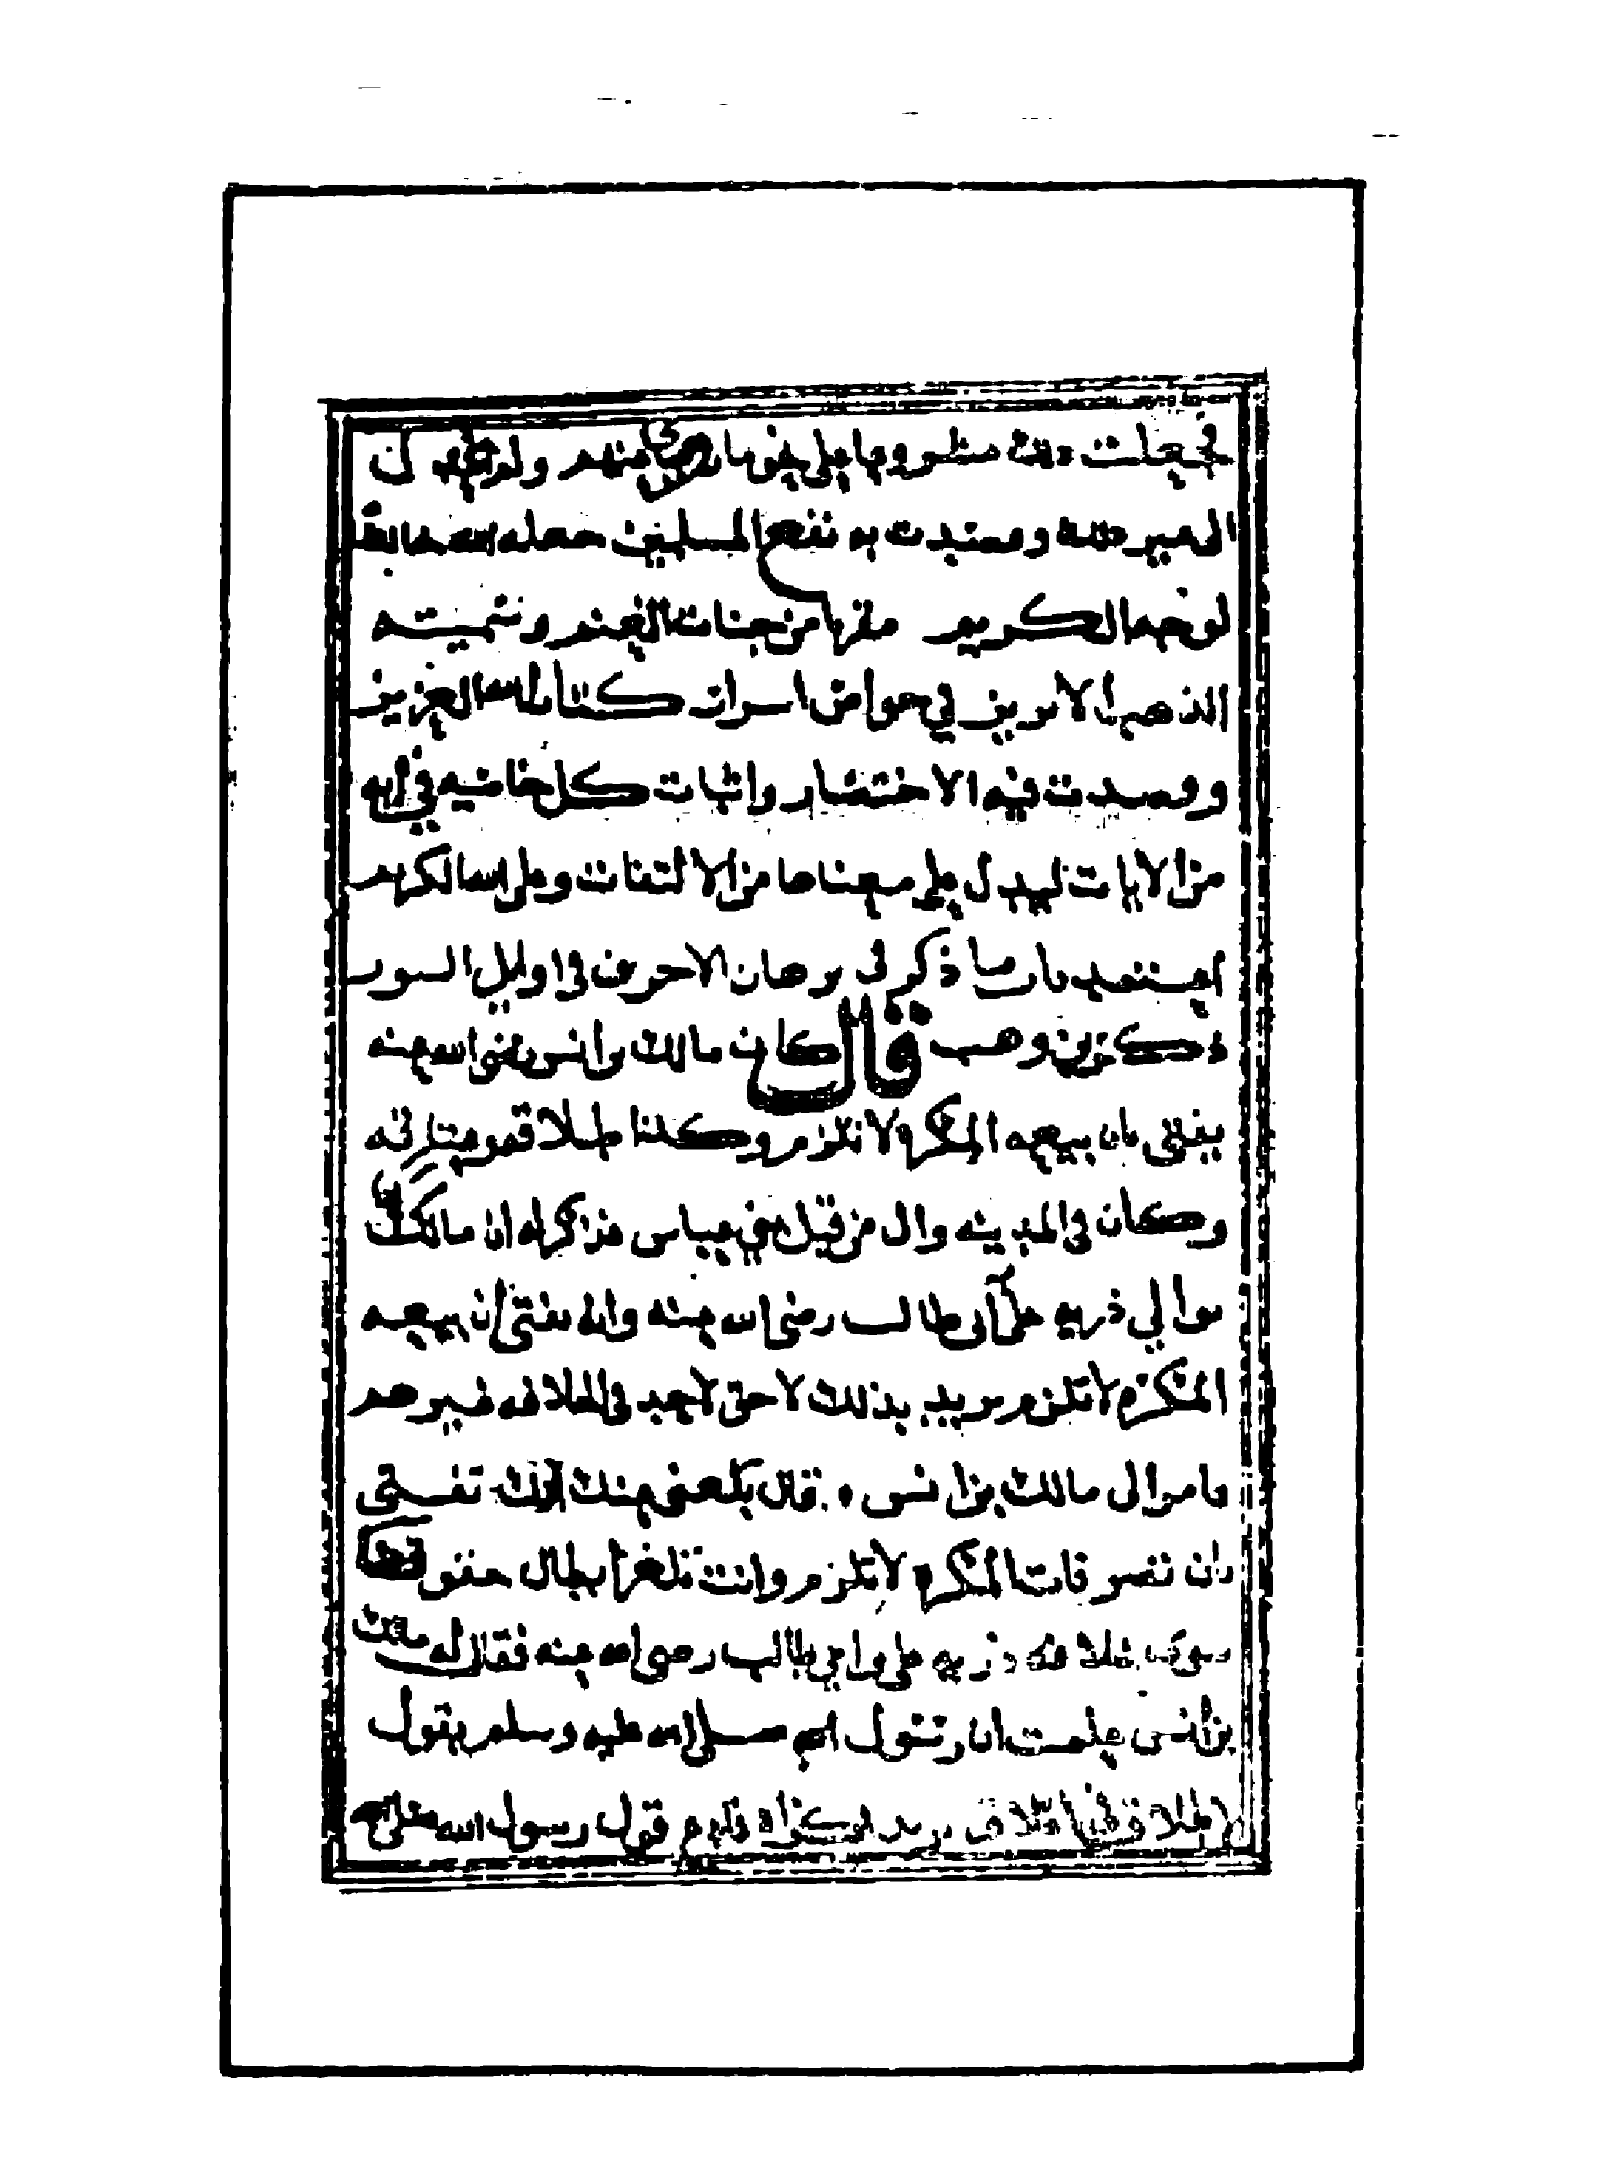 فجعلت منه مسطورها على نحو ما منهم ولم
الى غير ذلك وقصدت به نفع المسلمين جعله الله خالصا
لوجهه الكريم مقربا من جنات النعيم وسميته
الذهب الابريز في خواص اسرار كتاب الله العزيز
وقصدت فيه الاختصار واثبات كل خاصيه في ايه
من الايات ليدل على معناها من الالتفات وعلى الله الكريم
ذكر في برهان الاخرين في اوايل السور
ذكر بن وهب قال كان مالك بن انس رضي الله عنه
يفتي بان بيعه المكره لا تلزم وكذا طلاقه وعتاقه
وكان في المدينه وال من قبل بني عباس فذكر له ان مالك
يوالي ذريه علي ابي طالب رضى الله عنه وانه يفتى ان بيعه
المكره لا تلزم يريد بذلك لا حق لاحد في الخلافه غيرهم
فامر الى مالك بن انس قال بلغني عنك انك تفتي
بان تصرفات المكره لا تلزم وانت تلغز ابطال حقوق
سوى خلافه ذريه علي وابي طالب رضى الله عنه فقال له مالك
بن انس علمت ان رسول الله صلى الله عليه وسلم يقول
لا طلاق في اغلاق يريد الاكراه قول رسول الله صلى الله